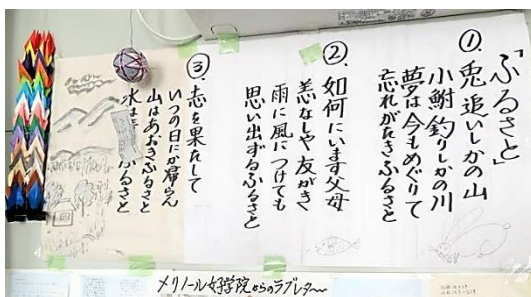 「ふるさと」
①. 兎追いしかの山
小鮒釣りしかの川
夢は今もめぐりて
忘れがたきふるさと
②. 如何にいます父母
恙なしや友がき
雨に風につけても
思い出ずるふるさと
③. 志を果たして
いつの日にか帰らん
山はあおきふるさと
水は ふるさと
メリノール女学院からのラブレター〜